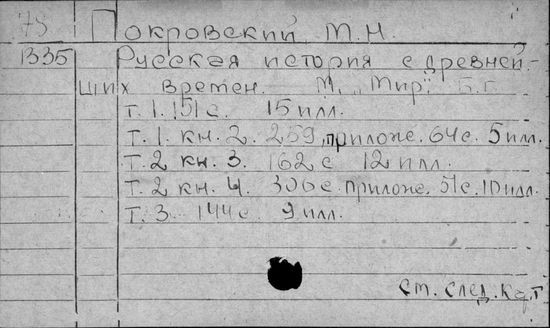 73 Покровский М.Н.
1335 Русская история с древней-
ших времен. М., "Мир", Б.г.
т. 1. 151 с. 15 илл.
т. 1. кн. 2. 259, прилож. 64 с. 5 илл.
т. 2 кн. 3. 162 с 12 илл.
т. 2 кн. 4. 306 с. прилож. 51 с. 10 илл.
т. 3 144 с. 9 илл.
см. след. к-т